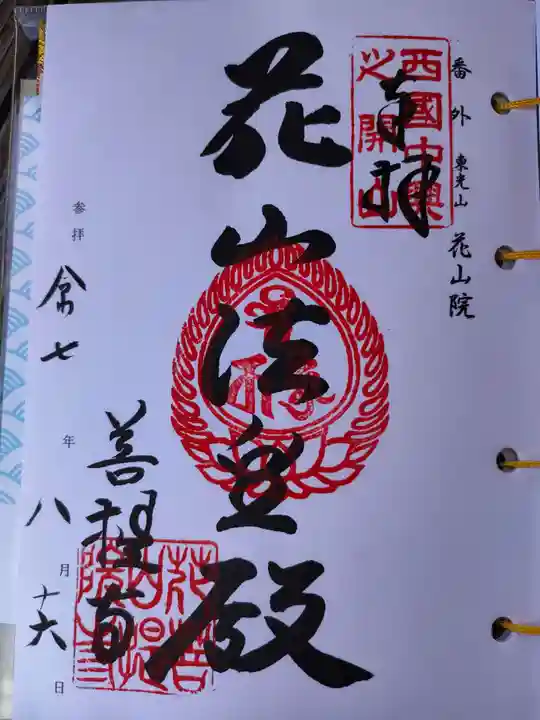 番外 東光山 花山院
西國中興
之開山
奉拝
花山法皇殿
菩提寺
参拝 令七年八月十六日